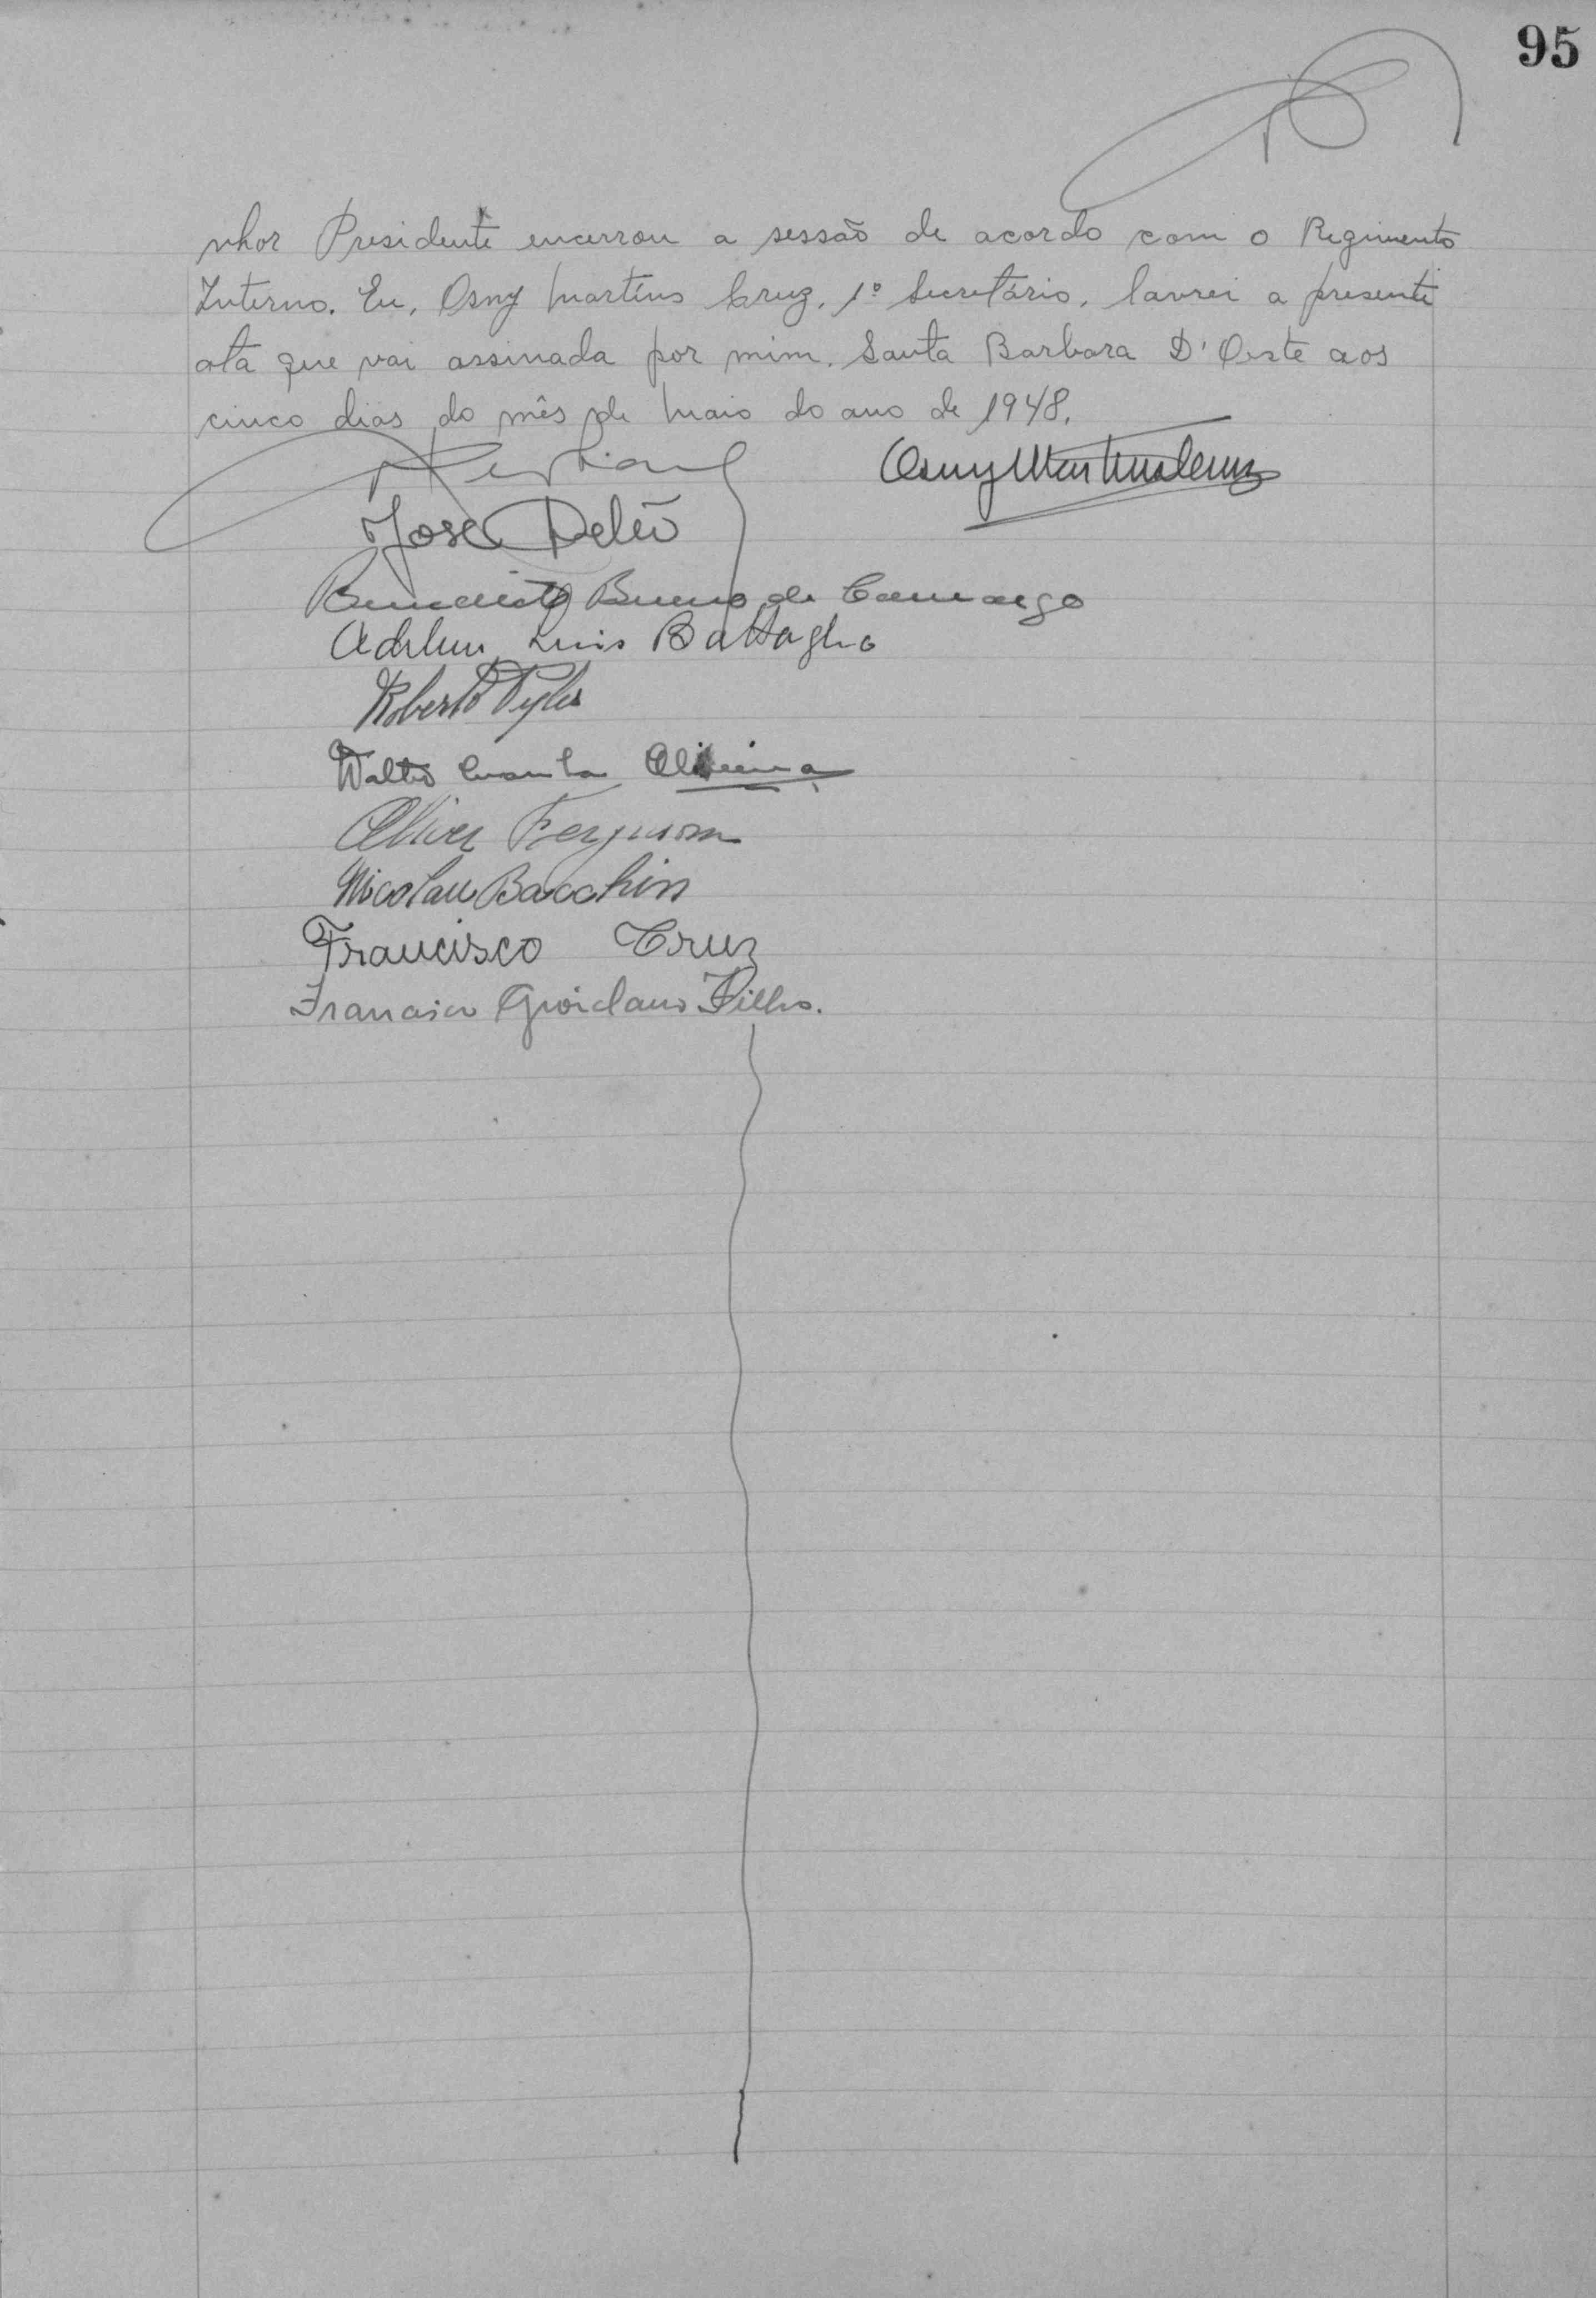 95
nhor Presidente encerrou a sessão de acordo com o Regimento
Interno. Eu, Osny Martins Cruz, 1º Secretário, lavrei a presente
ata que vai assinada por mim. Santa Barbara D'Oeste aos
cinco dias do mês de Maio do ano de 1948.
Osny Martins Cruz
José Deleo
Benedicto Bueno de Camargo
Luis Battaglia
Roberto Pyles
Oliveira
Oliver Ferguson
Nicolau Bacchin
Francisco Cruz
Francisco Giordano Filho.